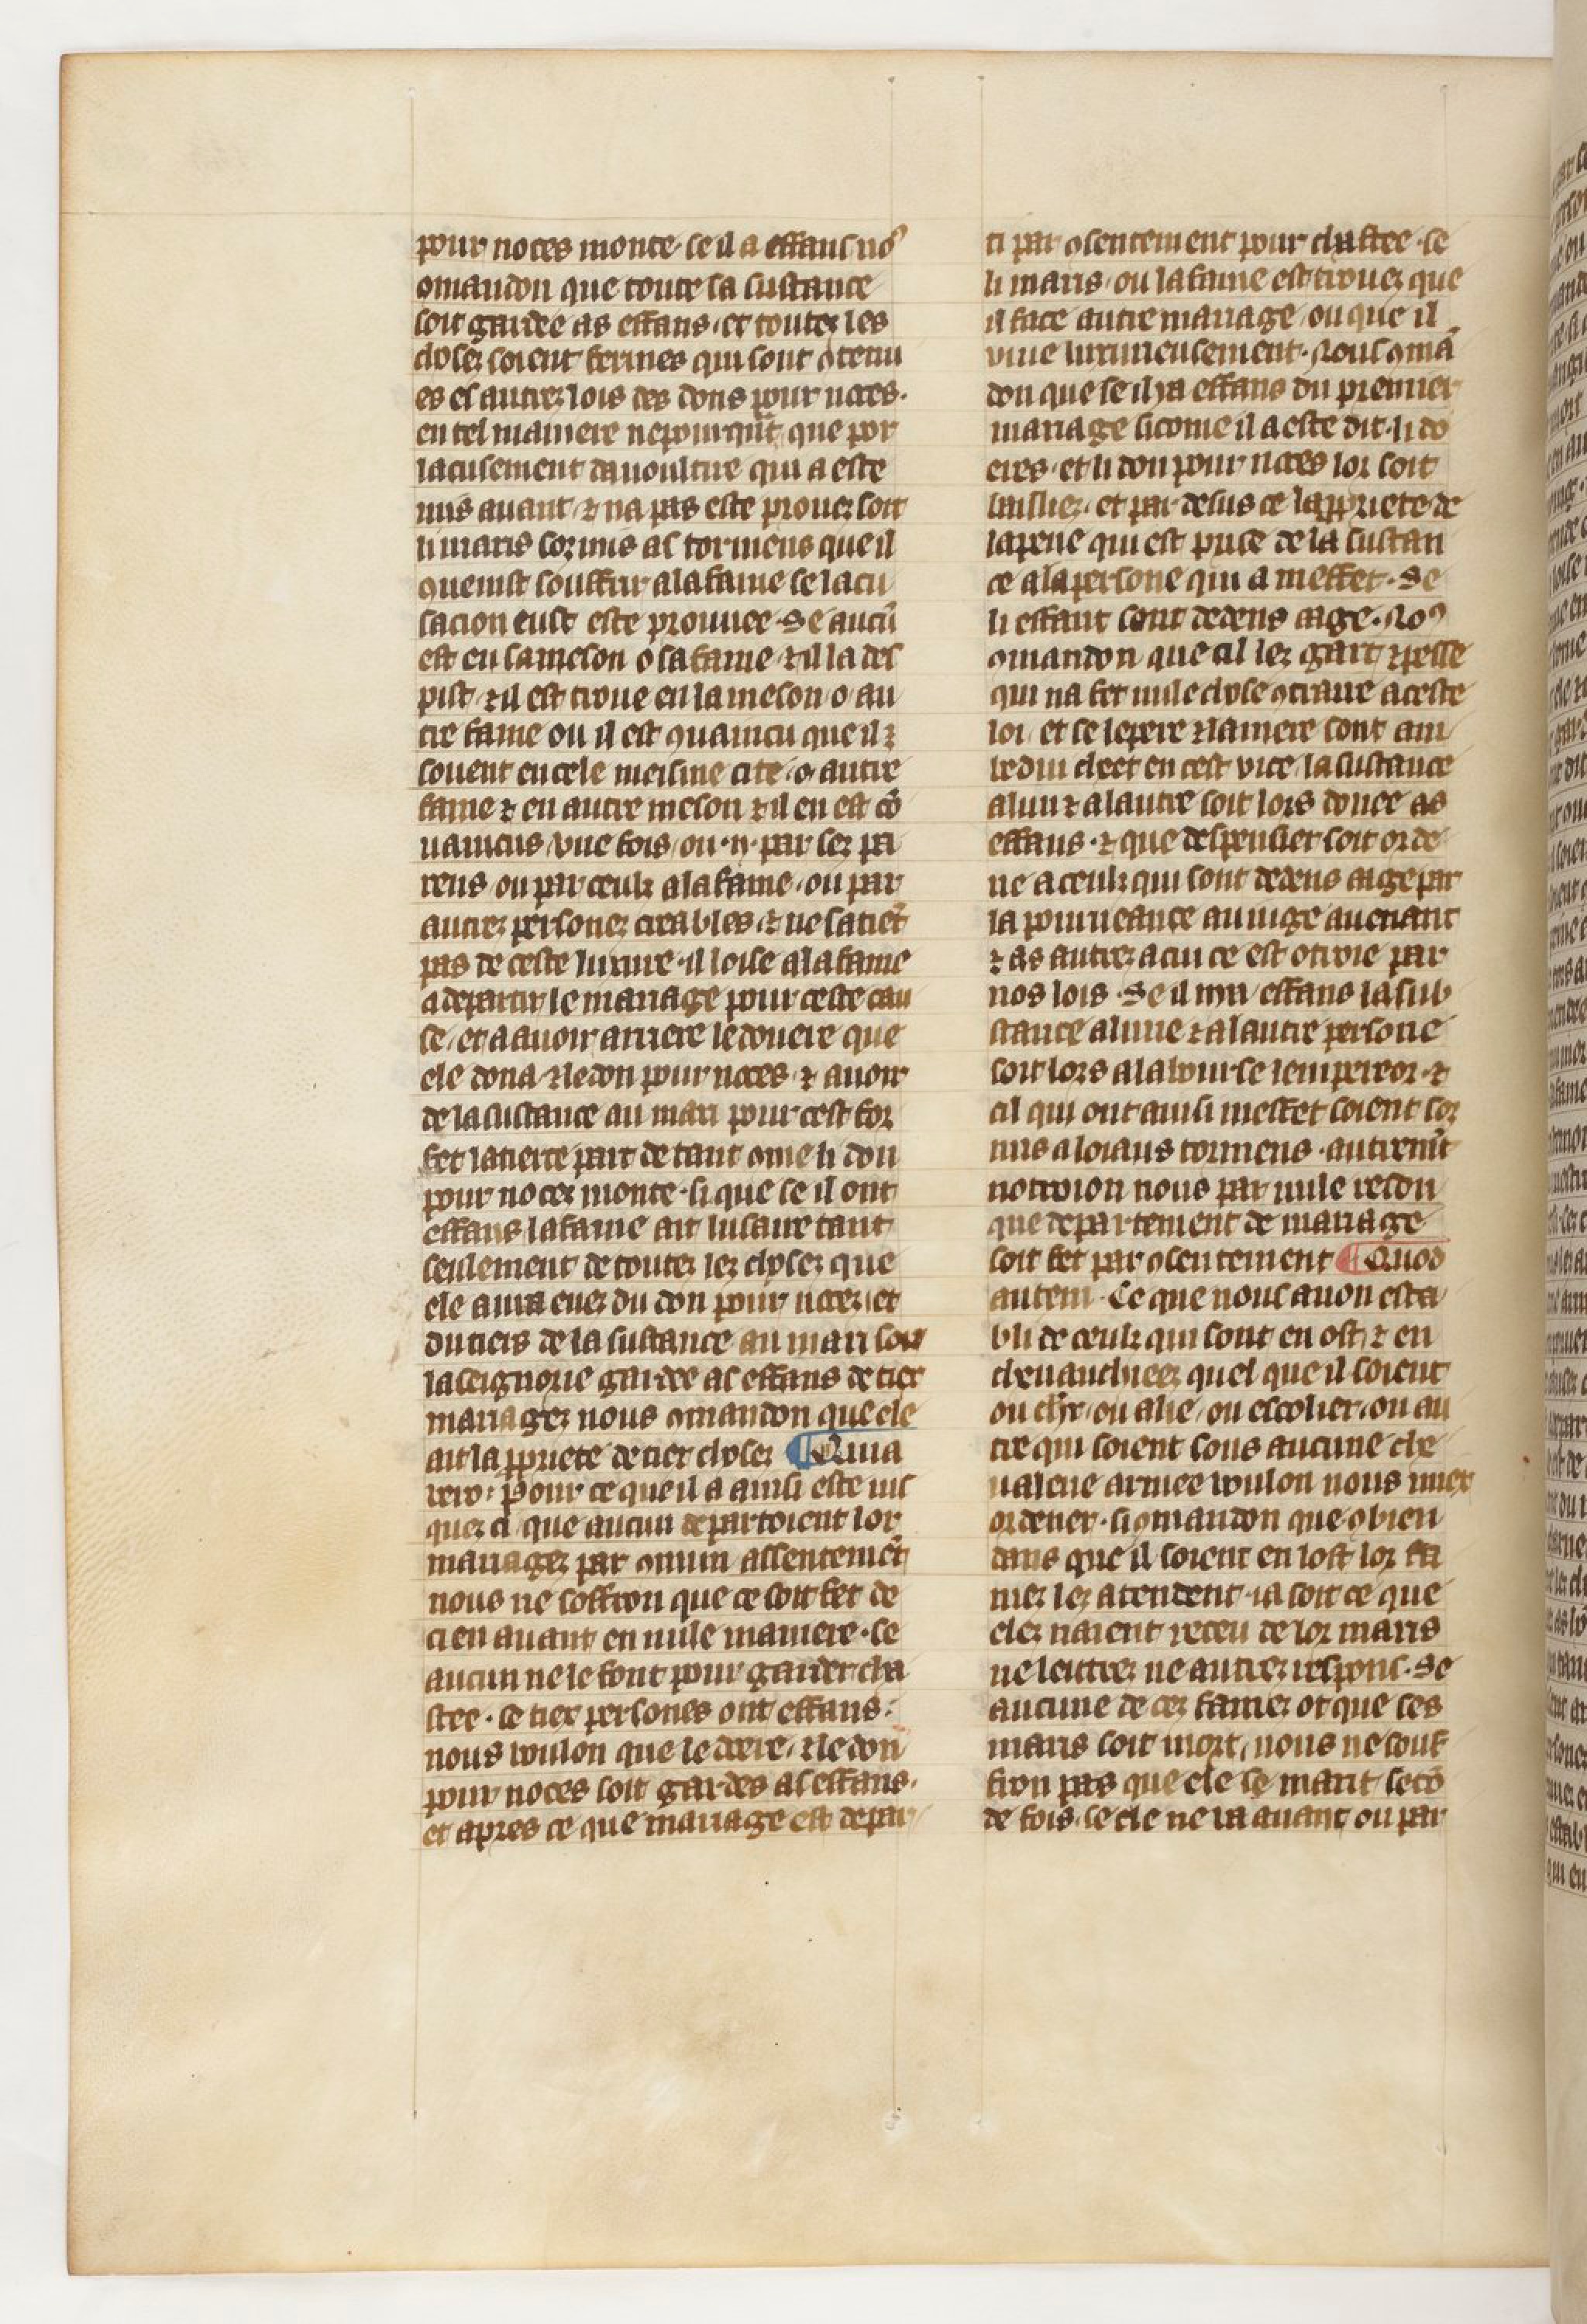 pour noces monte. se il a effans nꝰ
ꝯmandon que toute la sustance
soit gardee as effans. et toutez les
chosez soient fermes qui sont ꝯtenu
es es autrez lois des dons pour noces.
en tel maniere neporqūt que por
lacusement dauoultire qui a este
mis auant ⁊ na pas este prouez soit
li maris sozmis as tormens que il
quenist souffrir a la fame se lacu
sacion eust este prouuee. Se aucū
est en sa meson o sa fame ⁊ il la des
pist ⁊ il est troue en la meson o au
tre fame ou il est ꝯuaincu que il ⁊
souent en cele meisme cite o autre
fame ⁊ en autre meson ⁊ il en est cō
uaincus vne fois ou .ii. par sez pa
rens ou par ceulz a la fame. ou par
autrez personez creables ⁊ ne satiēt
pas de ceste luxure. il loise a la fame
a departir le mariage pour ceste cau
se. et a auoir arriere le douere que
ele dona ⁊ le don pour noces. ⁊ auoir
de la sustance au mari pour cest for
fet la tierce part de tant ꝯme li don
pour nocez monte. si que se il ont
effans la fame ait lusaire tant
seulement de toutez lez chosez que
ele aura euez du don pour nocez. et
du tiers de la sustance au mari soit
la seignorie gardee as effans de tiex
mariagez nous ꝯmandon que ele
ait la ꝓpriete de tiex chosez ¶ Quia
vero: Pour ce que il a ainsi este ius
quez ci que aucun departoient lor
mariagez par ꝯmun assentemēt
nous ne soffron que ce soit fet de
ci en auant en nule maniere. se
aucun ne le font pour garder cha
stee. se tiex persones ont effans:
nous voulon que le doere. ⁊ le don
pour noces soit gardes as effans.
et apres ce que mariage est depar
ti par ꝯsentement pour chastee. se
li maris. ou la fame est trouez que
il face autre mariage. ou que il
viue luxurieusement. Nous ꝯmā
don que se il ya effans du premier
mariage si come il a este dit. li do
eres. et li don pour noces lor soit
laissiez. et par desus ce la ꝓpriete de
la peine qui est prise de la sustan
ce a la persone qui a meffet. Se
li effant sont dedens aage. Noꝰ
ꝯmandon que cil lez gart ⁊ pesse
qui na fet nule chose ꝯtraire a ceste
loi. et se le pere ⁊ la mere sont am
bedui cheet en cest vice la sustance
a lun ⁊ a lautre soit lors donee as
effans. ⁊ que despensier soit orde
ne a ceulz qui sont dedens aage par
la pourueance au iuge auenant
⁊ as autrez a cui ce est otroie par
nos lois. Se il nya effans la sub
stance a lune ⁊ a lautre persone
soit lors a la bourse lempereor. ⁊
cil qui ont ainsi meffet soient soz
mis a loiaus tormens. autremēt
notroion nous par nule reson
que departement de mariage
soit fet par ꝯsentement ¶ Quod
autem. Ce que nous auon esta
bli de ceulz qui sont en ost. ⁊ en
cheuauchieez quel que il soient
ou chr̄. ou alie. ou escolier. ou au
tre qui soient sous aucune che
ualerie armee voulon nous miex
ordener. si ꝯmandon que ꝯbien
dans que il soient en lost lor fa
mez lez atendent. ia soit ce que
elez naient receu de lor maris
ne lettrez ne autrez respons. Se
aucune de cez famez ot que ses
maris soit mort. nous ne souf
fron pas que ele se marit secō
de fois. se ele ne va auant ou par